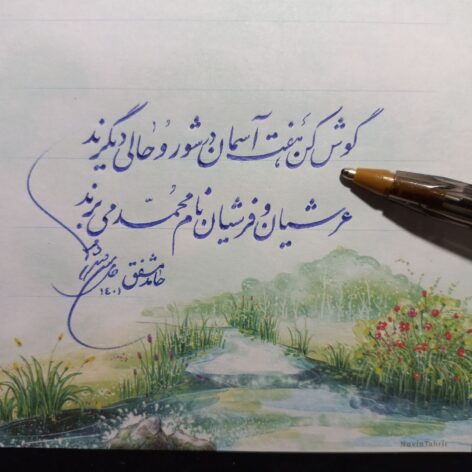 گوش کن هفت آسمان در شور و حالی دیگرند
عرشیان و فرشیان نام محمد می برند
حامد شفق
۱۴۰۱
NavinTahrir